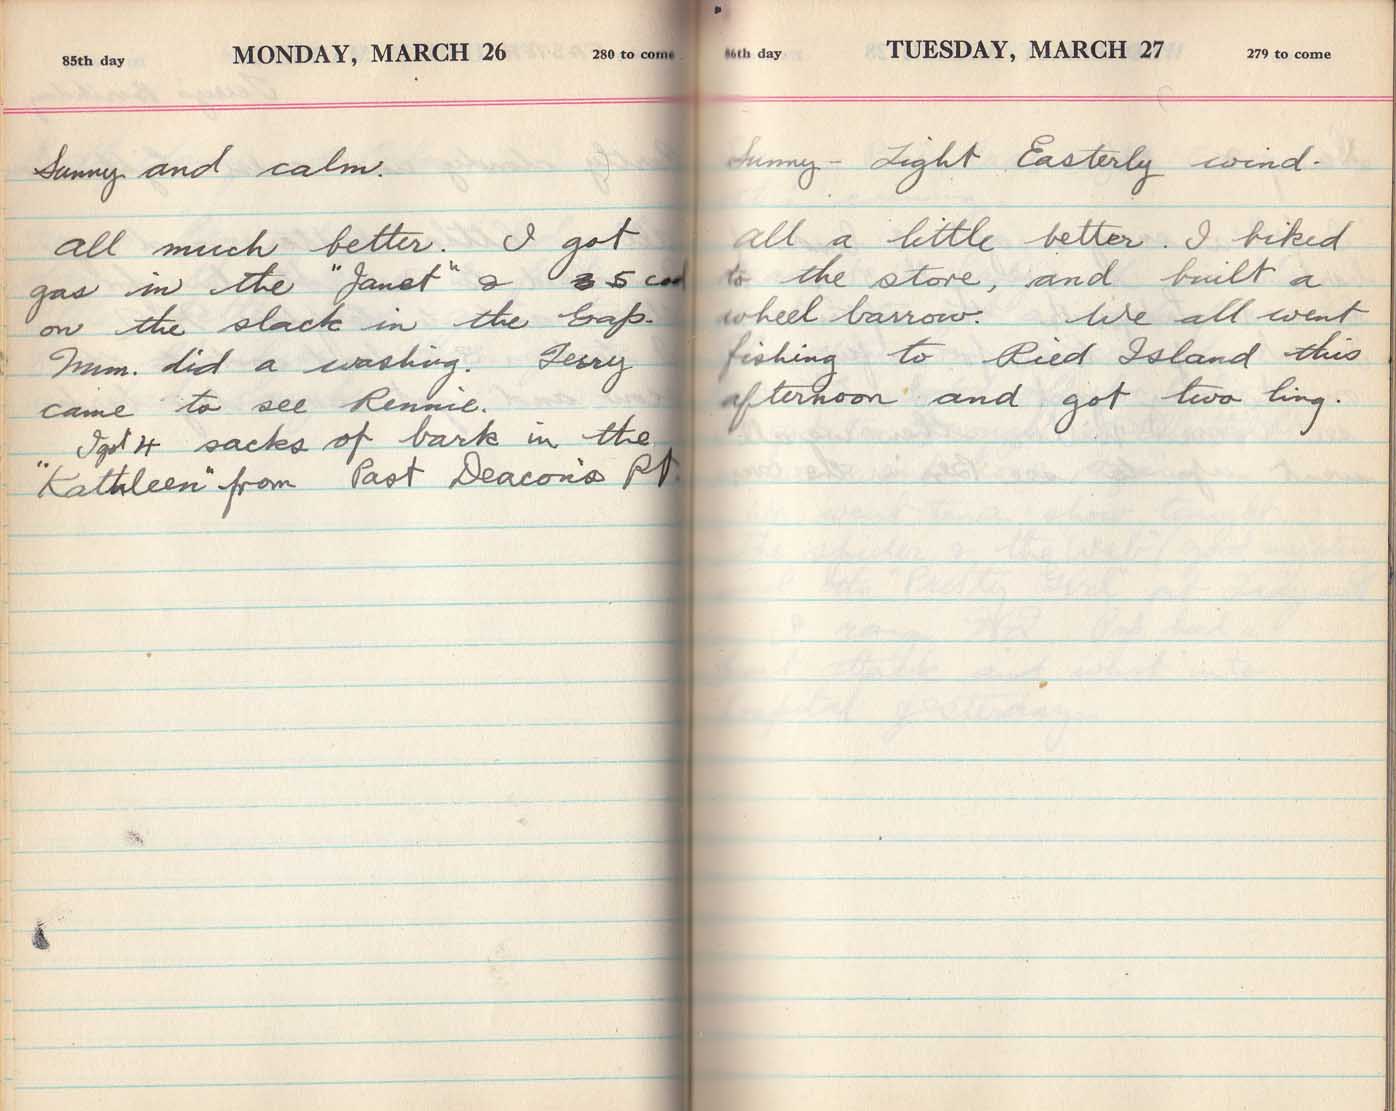 85th day MONDAY, MARCH 26 280 to come
Sunny and calm.
All much better. I got
gas in the "Janet" & 35 cod
on the slack in the Gap.
Mum. did a washing. Terry
came to see Rennie.
I got 4 sacks of bark in the
"Kathleen" from Past Deacon's Pt.
86th day TUESDAY, MARCH 27 279 to come
Sunny - Light Easterly wind.
All a little better. I biked
to the store, and built a
wheel barrow. We all went
fishing to Ried Island this
afternoon and got two ling.